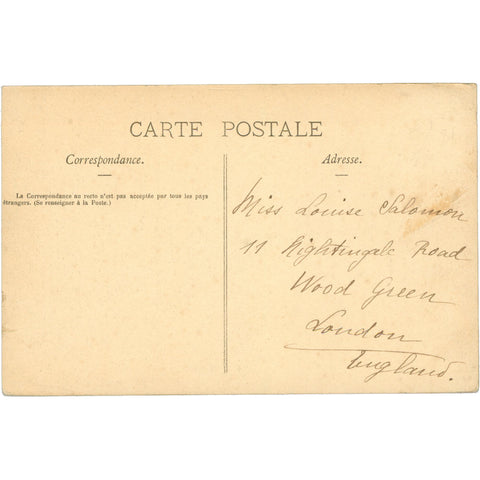 CARTE POSTALE
Correspondance.
La Correspondance au recto n'est pas acceptée par tous les pays
étrangers. (Se renseigner à la Poste.)
Adresse.
Miss Louise Salomon
11 Nightingale Road
Wood Green
London
England.